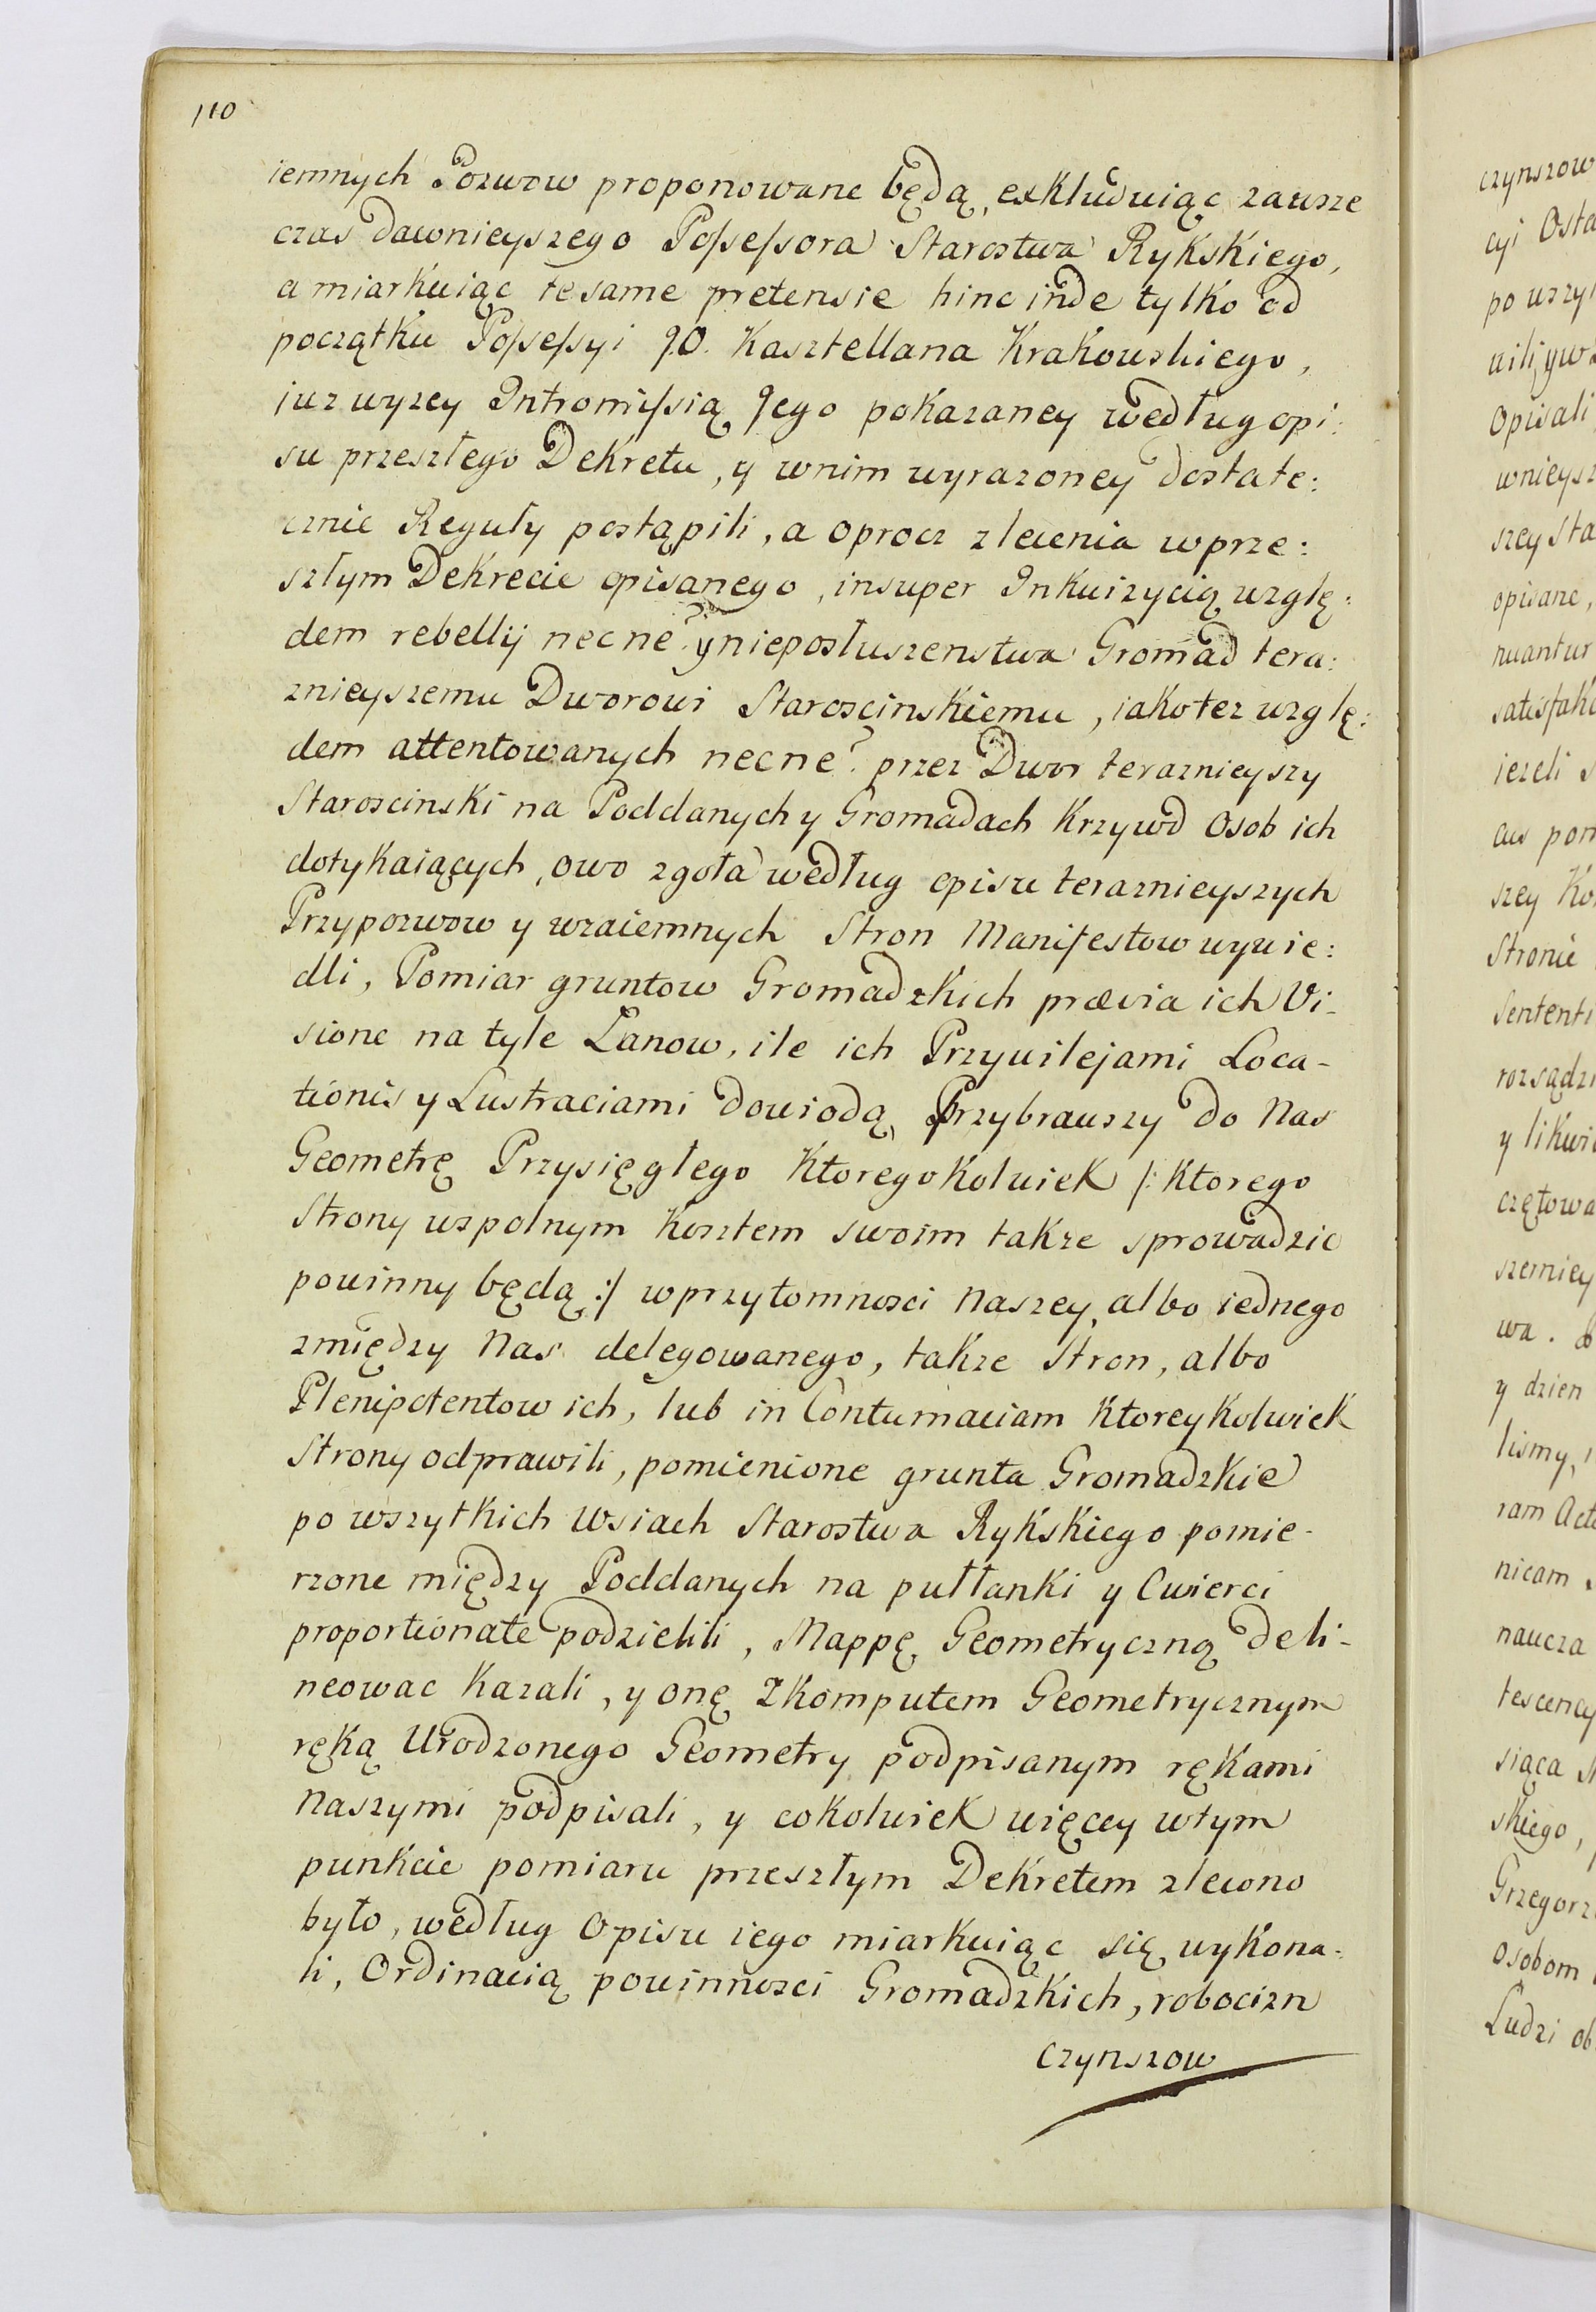 110
iemnych Pozwow proponowane będą, exkluduiąc zawsze
czas dawnieyszego Possessora Starostwa Rykskiego,
a miarkuiąc te same pretensie hinc inde tylko od
początku Possessyi J.O. Kasztellana Krakowskiego,
juz wyzey Intromissią Jego pokazaney według opi:
su przeszłego Dekretu, y wnim wyrazoney dostate:
cznie Reguły postąpili, a oprocz zlecenia wprze:
szłym Dekrecie opisanego, insuper Inkwizycią wzglę:
dem rebellij necne? y nieposłuszenstwa Gromad tera:
znieyszemu Dworowi Staroscinskiemu, iako tez wzglę:
dem attentowanych necne? przez Dwor teraznieyszy
Staroscinski na Poddanych y Gromadach Krzywd Osob ich
dotykaiących, owo zgoła według opisu teraznieyszych
Przypozwow y wzaiemnych Stron Manifestow wywie:
dli, Pomiar gruntow Gromadzkich prævia ich Vi-
sione na tyle Lanow, ile ich Przywilejami Loca-
tionis y Lustraciami dowiodą, Przybrawszy do Nas
Geometrę Przysięgłego Ktoregokolwiek /: Ktorego
Strony wspolnym Kosztem swoim takze sprowadzic
powinny będą :/ wprzytomnosci Naszey, albo iednego
zmiędzy Nas delegowanego, takze Stron, albo
Plenipotentow ich, lub in Contumaciam Ktoreykolwiek
Strony odprawili, pomienione grunta Gromadzkie
po wszytkich Wsiach Starostwa Rykskiego pomie-
rzone między Poddanych na pułłanki y Cwierci
proportionate podzielili, Mappę Geometryczną deli-
neowac Kazali, y onę Zkomputem Geometrycznym
ręką Urodzonego Geometry podpisanym rękami
Naszymi podpisali, y cokolwiek więcey wtym
punkcie pomiaru przeszłym Dekretem zlecono
było, według Opisu iego miarkuiąc się wykona-
li, Ordinacią powinnosci Gromadzkich, robocizn
Czynszow
czynszow
cyi Osta
po wszy
Opisali
wnieysz
szey Sta
opisane,
nuantur
satisfak
iezeli
szey Ko
Stronie
Sententi
rozsądzi
y likwi
czętowa
szemiey
wa.
y dzien
lismy,
ram Act
nicam
naucza
tescency
siąca
skiego,
Grzegorz
osobom
Ludzi ob